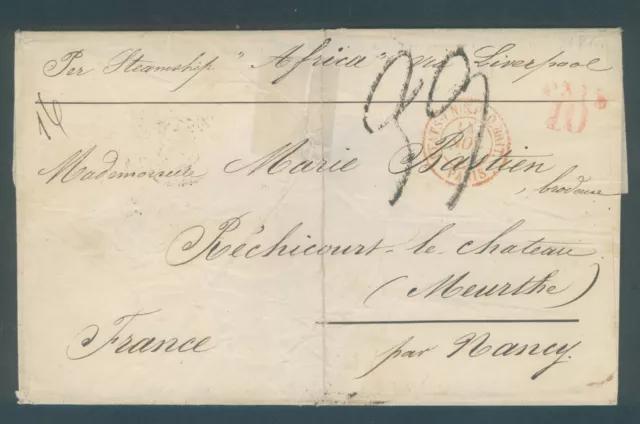 Per Steamship "Africa" via Liverpool
PAID
10
39
NOV
PARIS
Mademoiselle Marie Bastien
, brodeuse
Réchicourt-le-chateau
(Meurthe)
France
par Nancy.